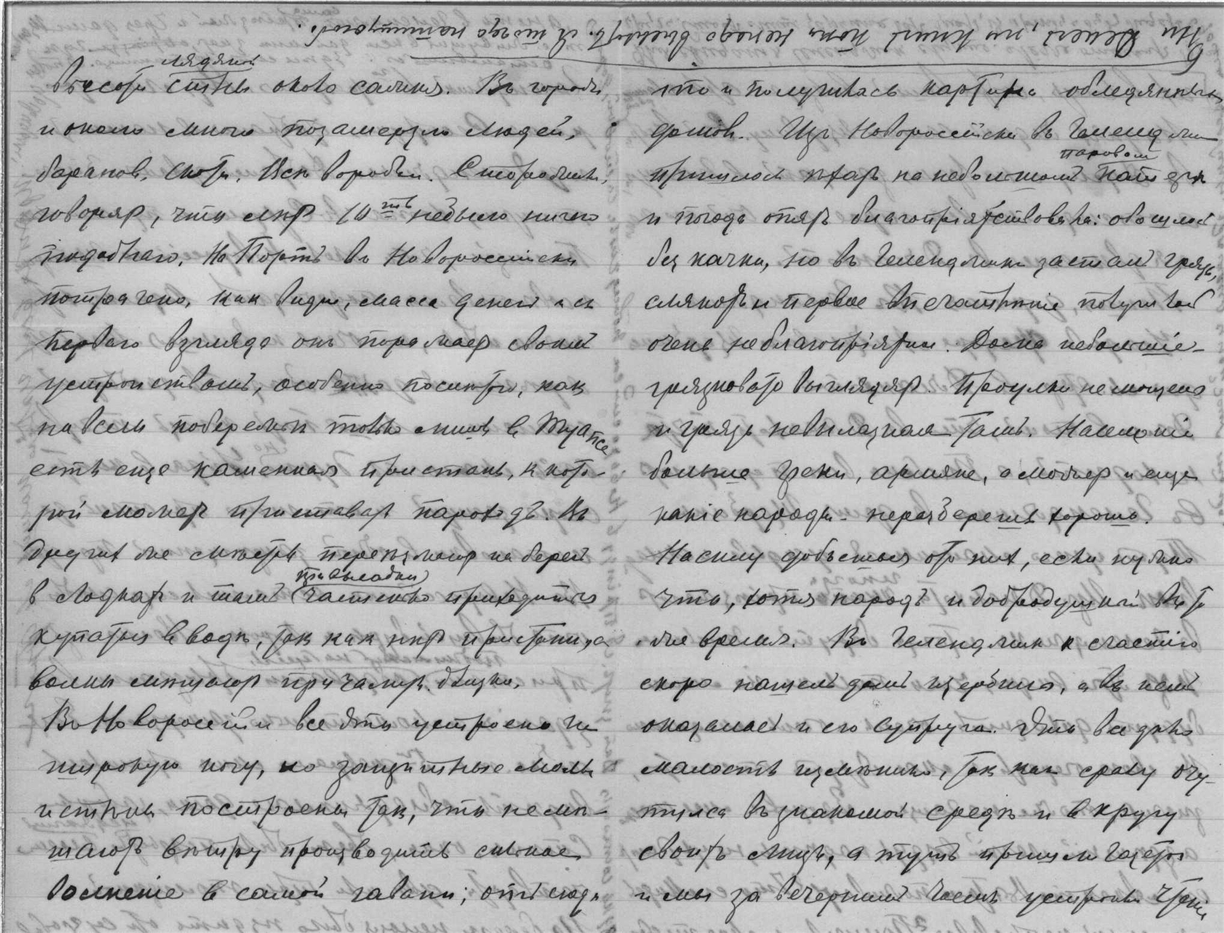 высоты ледяныя стѣны около самыя. Въ городѣ,
и около много позамерзло людей,
баранов, скота. Исп воробьи. Старожилы,
говорят, что лѣт 10ть небыло ничего
подобнаго. На Портъ въ Новороссійскѣ
потрачено, как видно, масса денег и съ
перваго взгляда он поражает своим
устройством, особенно посмотря, как
на всем побережьи только лишь в Туапсе
есть еще каменная пристань, к кото-
рой может приставать пароход. Въ
других же мѣстах перевозят на берег
в лодках и там при высадки частенько приходится
купаться в водѣ, так как нѣт пристани, а
волны мѣшают причалить близко.
Въ Новороссійскѣ все это устроено на
широкую ногу, но защитные молы
и стѣны построены так, что не мѣ-
шают вѣтру производить сильное
волненіе в самой гавани; отсюда
что и получилась картина обледянѣлых
домов. Из Новороссійска въ Геленджик
пришлось ѣхать на небольшом паровом
и погода опять благопріятствовала: обошлось
без качки, но въ Геленджикѣ застал грязь,
слякоть и первое впечатлѣніе получил
очень неблагопріятное. Дома небольшіе -
грязновато выглядят проулки не мощены
и грязь невылазная там. Населеніе
больше греки, армяне, а может и еще
какіе народы - неразберешь хорошо.
Насилу добьешься от них, если нужно
что, хотя народъ и добродушный въ то
же время. Въ Геленджик к счастію
скоро нашел дом, а въ нем
оказалась и его супруга. Это все дѣло
малость измѣнило, так как сразу очу-
тился въ знакомой средѣ и в кругу
своих лиц, а тут пришли газеты
и мы за вечерним чаем устроили чтеніе